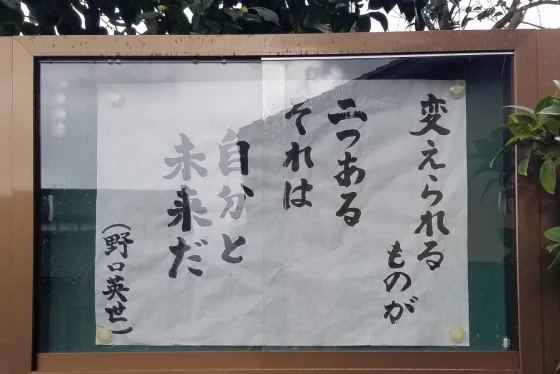 変えられる
ものが
二つある
それは
自分と
未来だ
(野口英世)